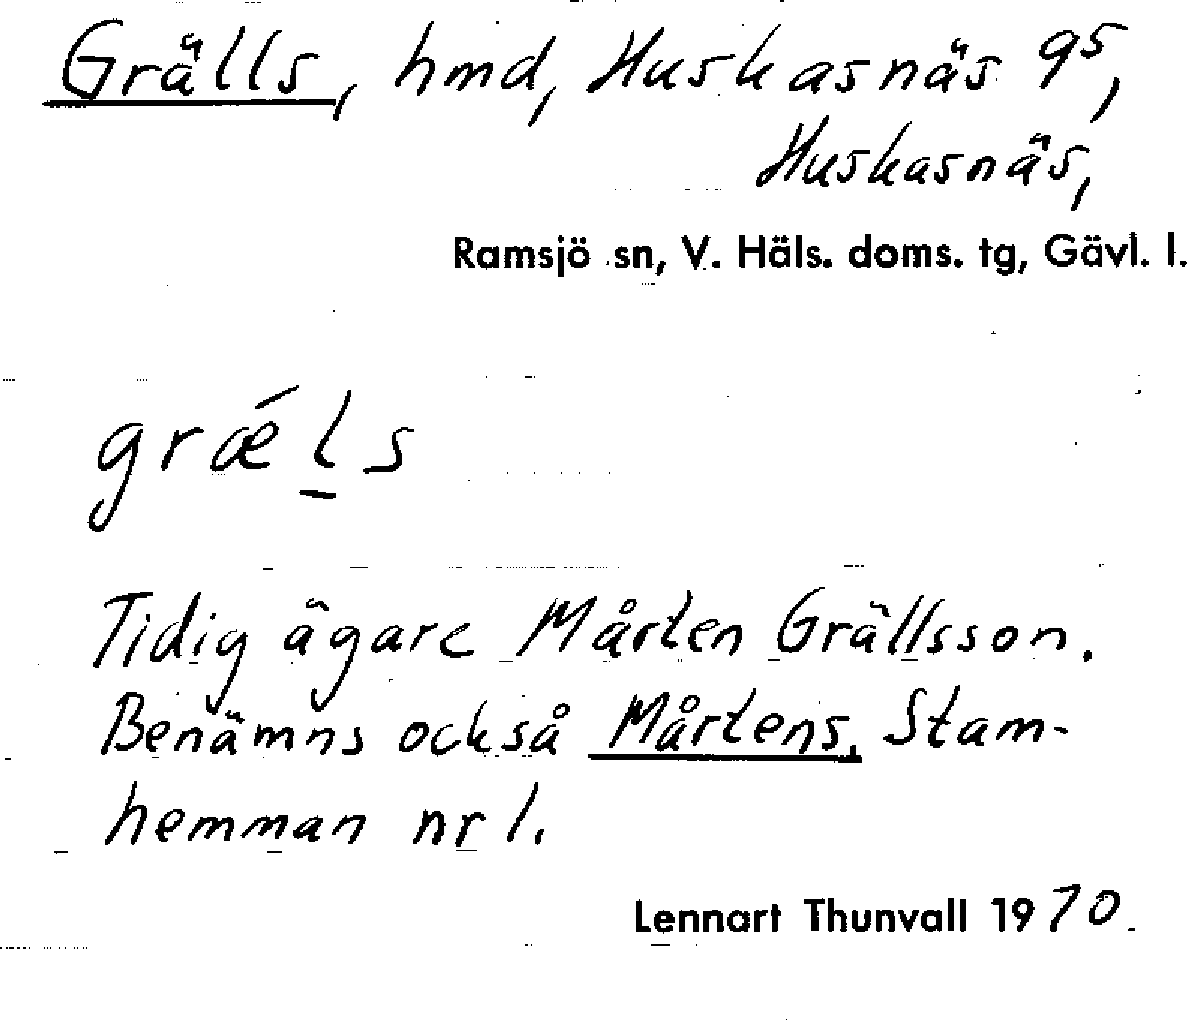 Grälls, hmd, Huskasnäs 9⁵,
Huskasnäs,
Ramsjö sn, V. Häls. doms. tg, Gävl. l.
grǽl̲s
Tidig ägare Mårten Grällsson.
Benämns också Mårtens. Stam-
hemman nr 1.
Lennart Thunvall 1970